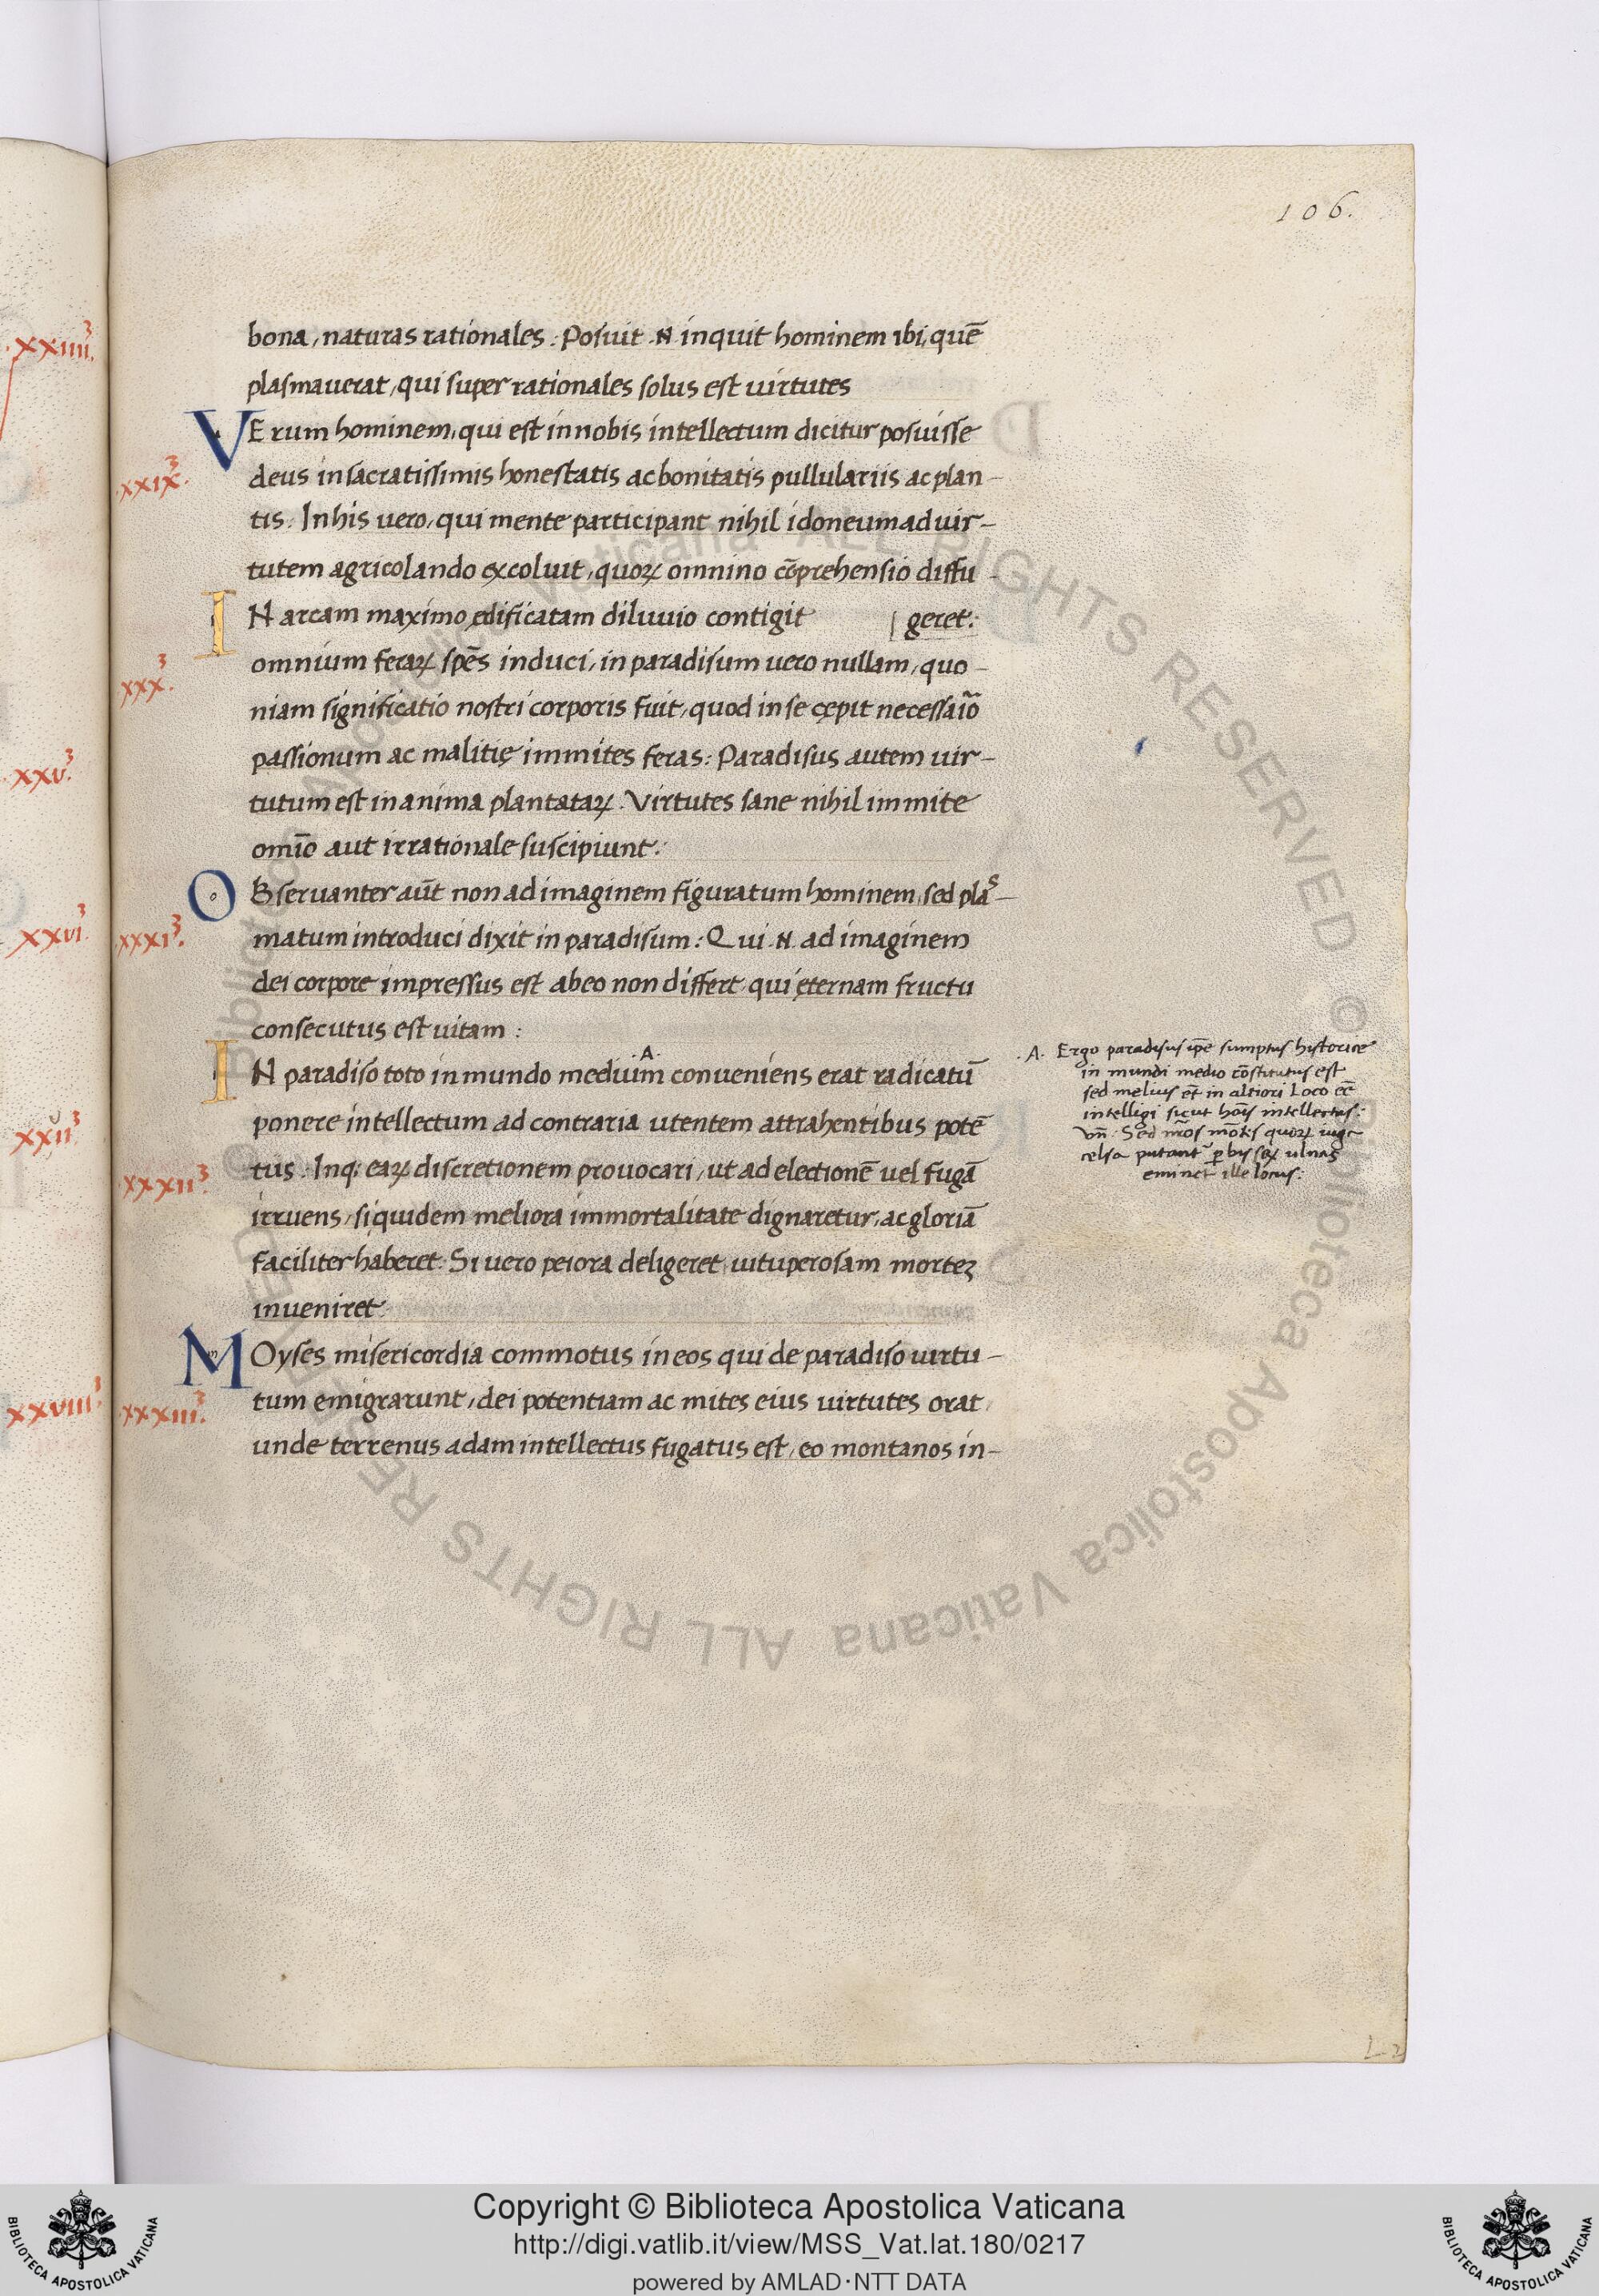 106.
bona, naturas rationales: Posuit .N. inquit hominem ibi, quē
plasmauerat, qui super rationales solus est uirtutes
VErum hominem, qui est in nobis intellectum dicitur posuisse
deus in sacratissimis honestatis ac bonitatis pullulariis ac plan-
tis: In his uero, qui mente participant nihil idoneum ad uir-
tutem agricolando excoluit, quoꝝ omnino cōprehensio diffu-
geret:
IN arcam maximo ędificatam diluuio contigit
omnium feraꝝ spēs induci, in paradisum uero nullam, quo-
niam significatio nostri corporis fuit, quod in se cępit necessaīo
passionum ac malitię immites feras: Paradisus autem uir-
tutum est in anima plantataꝝ. Virtutes sane nihil immite
omīo aut irrationale suscipiunt:
OBseruanter aūt non ad imaginem figuratum hominem, sed plas-
matum introduci dixit in paradisum: Qui .N. ad imaginem
dei corpore impressus est ab eo non differt, qui ęternam fructu
consecutus est uitam:
.A.
IN paradiso toto in mundo medium conueniens erat radicatū
ponere intellectum ad contraria utentem attrahentibus potē
tus: Inq; eaꝝ discretionem prouocari, ut ad electionē uel fugā
irruens, siquidem meliora immortalitate dignaretur, ac gloriā
faciliter haberet: Si uero peiora deligeret, uituperosam mortez
inueniret:
MOyses misericordia commotus in eos qui de paradiso uirtu-
tum emigrarunt, dei potentiam ac mites eius uirtutes orat,
unde terrenus adam intellectus fugatus est, eo montanos in-
.xxix.3
xxx.3
.xxxi.3
.xxxii.3
.xxxiii.3
.A. Ergo paradisus ipē sumptus historice
in mundi medio cōstitutus est
sed melius et̄ in altiori Loco eē
intelligi sicut hoīs intellectus:
Vn̄. Sed nr̄os
celsa putant̄
eminet ille locus:
.xxiiii.3
.xxv.3
xxvi.3
xxvii.3
xxviii.3
L 2
Copyright © Biblioteca Apostolica Vaticana
http://digi.vatlib.it/view/MSS_Vat.lat.180/0217
powered by AMLAD·NTT DATA
BIBLIOTECA APOSTOLICA VATICANA
BIBLIOTECA APOSTOLICA VATICANA
© Biblioteca Apostolica Vaticana ALL RIGHTS RESERVED © Biblioteca Apostolica Vaticana ALL RIGHTS RESERVED